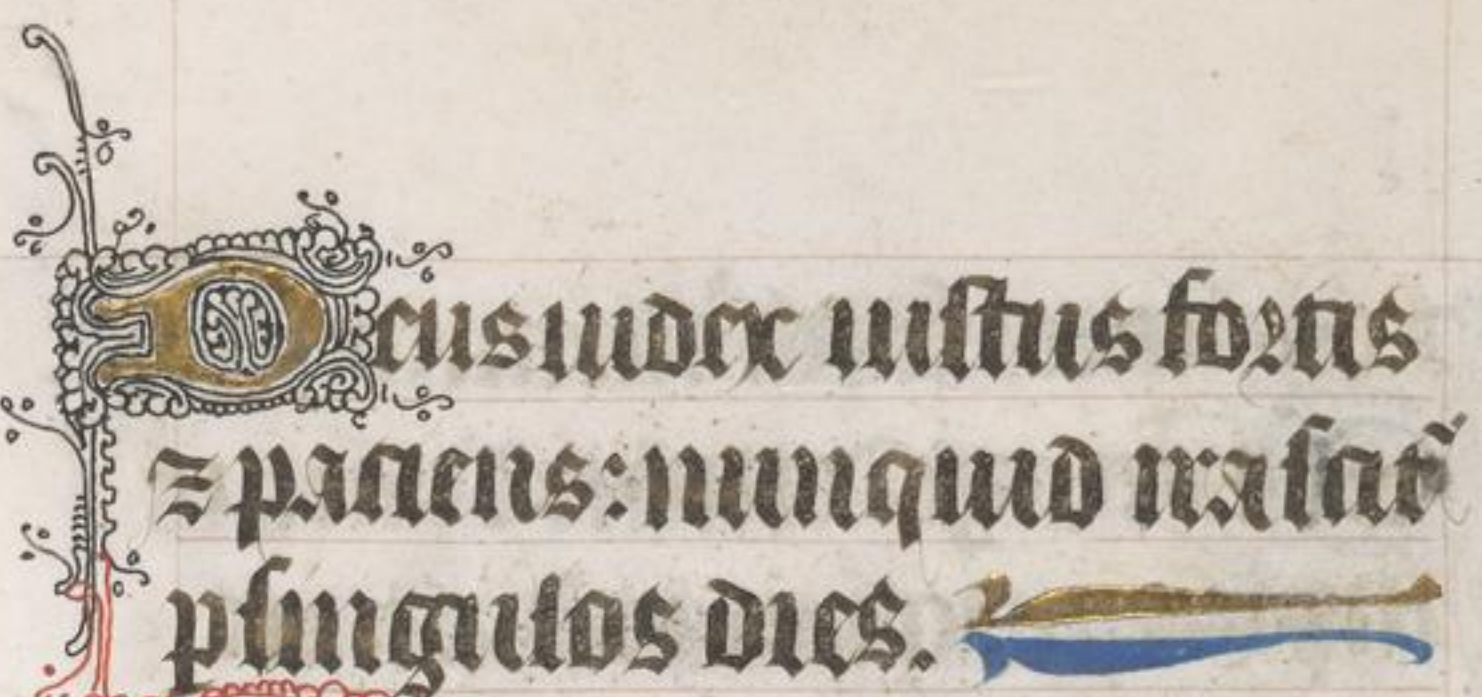 Deus iudex iustus fortis
⁊ paciens: nunquid irascit᷑
p singulos dies.